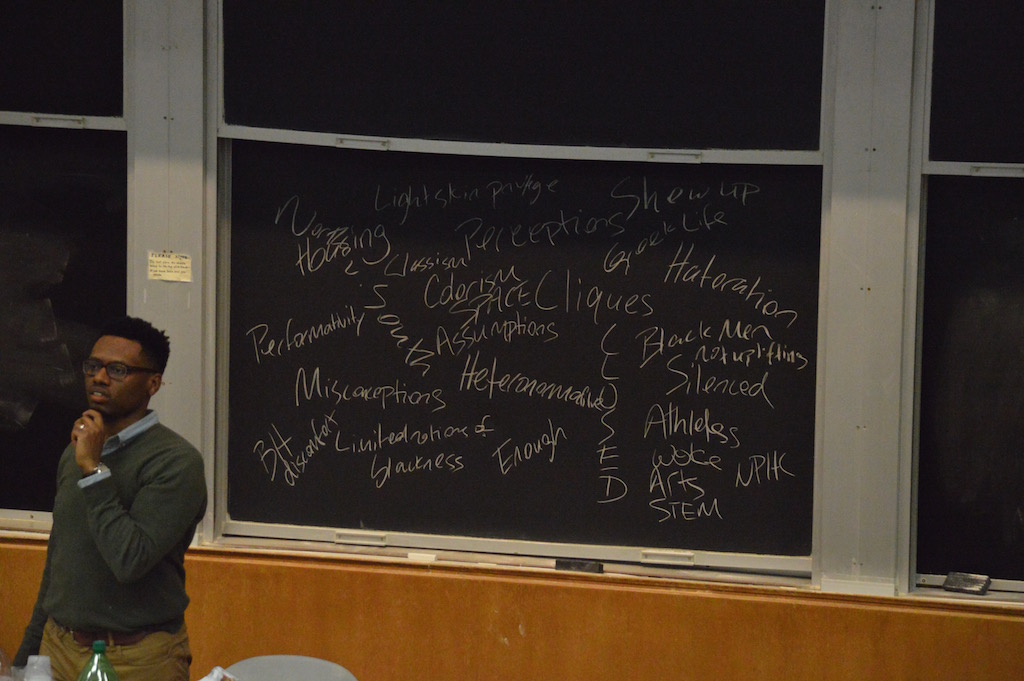 Lightskin privilege
Show up
Perceptions
Greek Life
Housing
Classism
Hateration
Colorism
SPACE
Cliques
Performativity
South
Assumptions
Black Men
not uplifting
Misconceptions
Heteronormative
Silenced
CLOSED
Athletes
BH
discomfort
Limited notions of
blackness
Enough
woke
NPHC
Arts
STEM
PLEASE